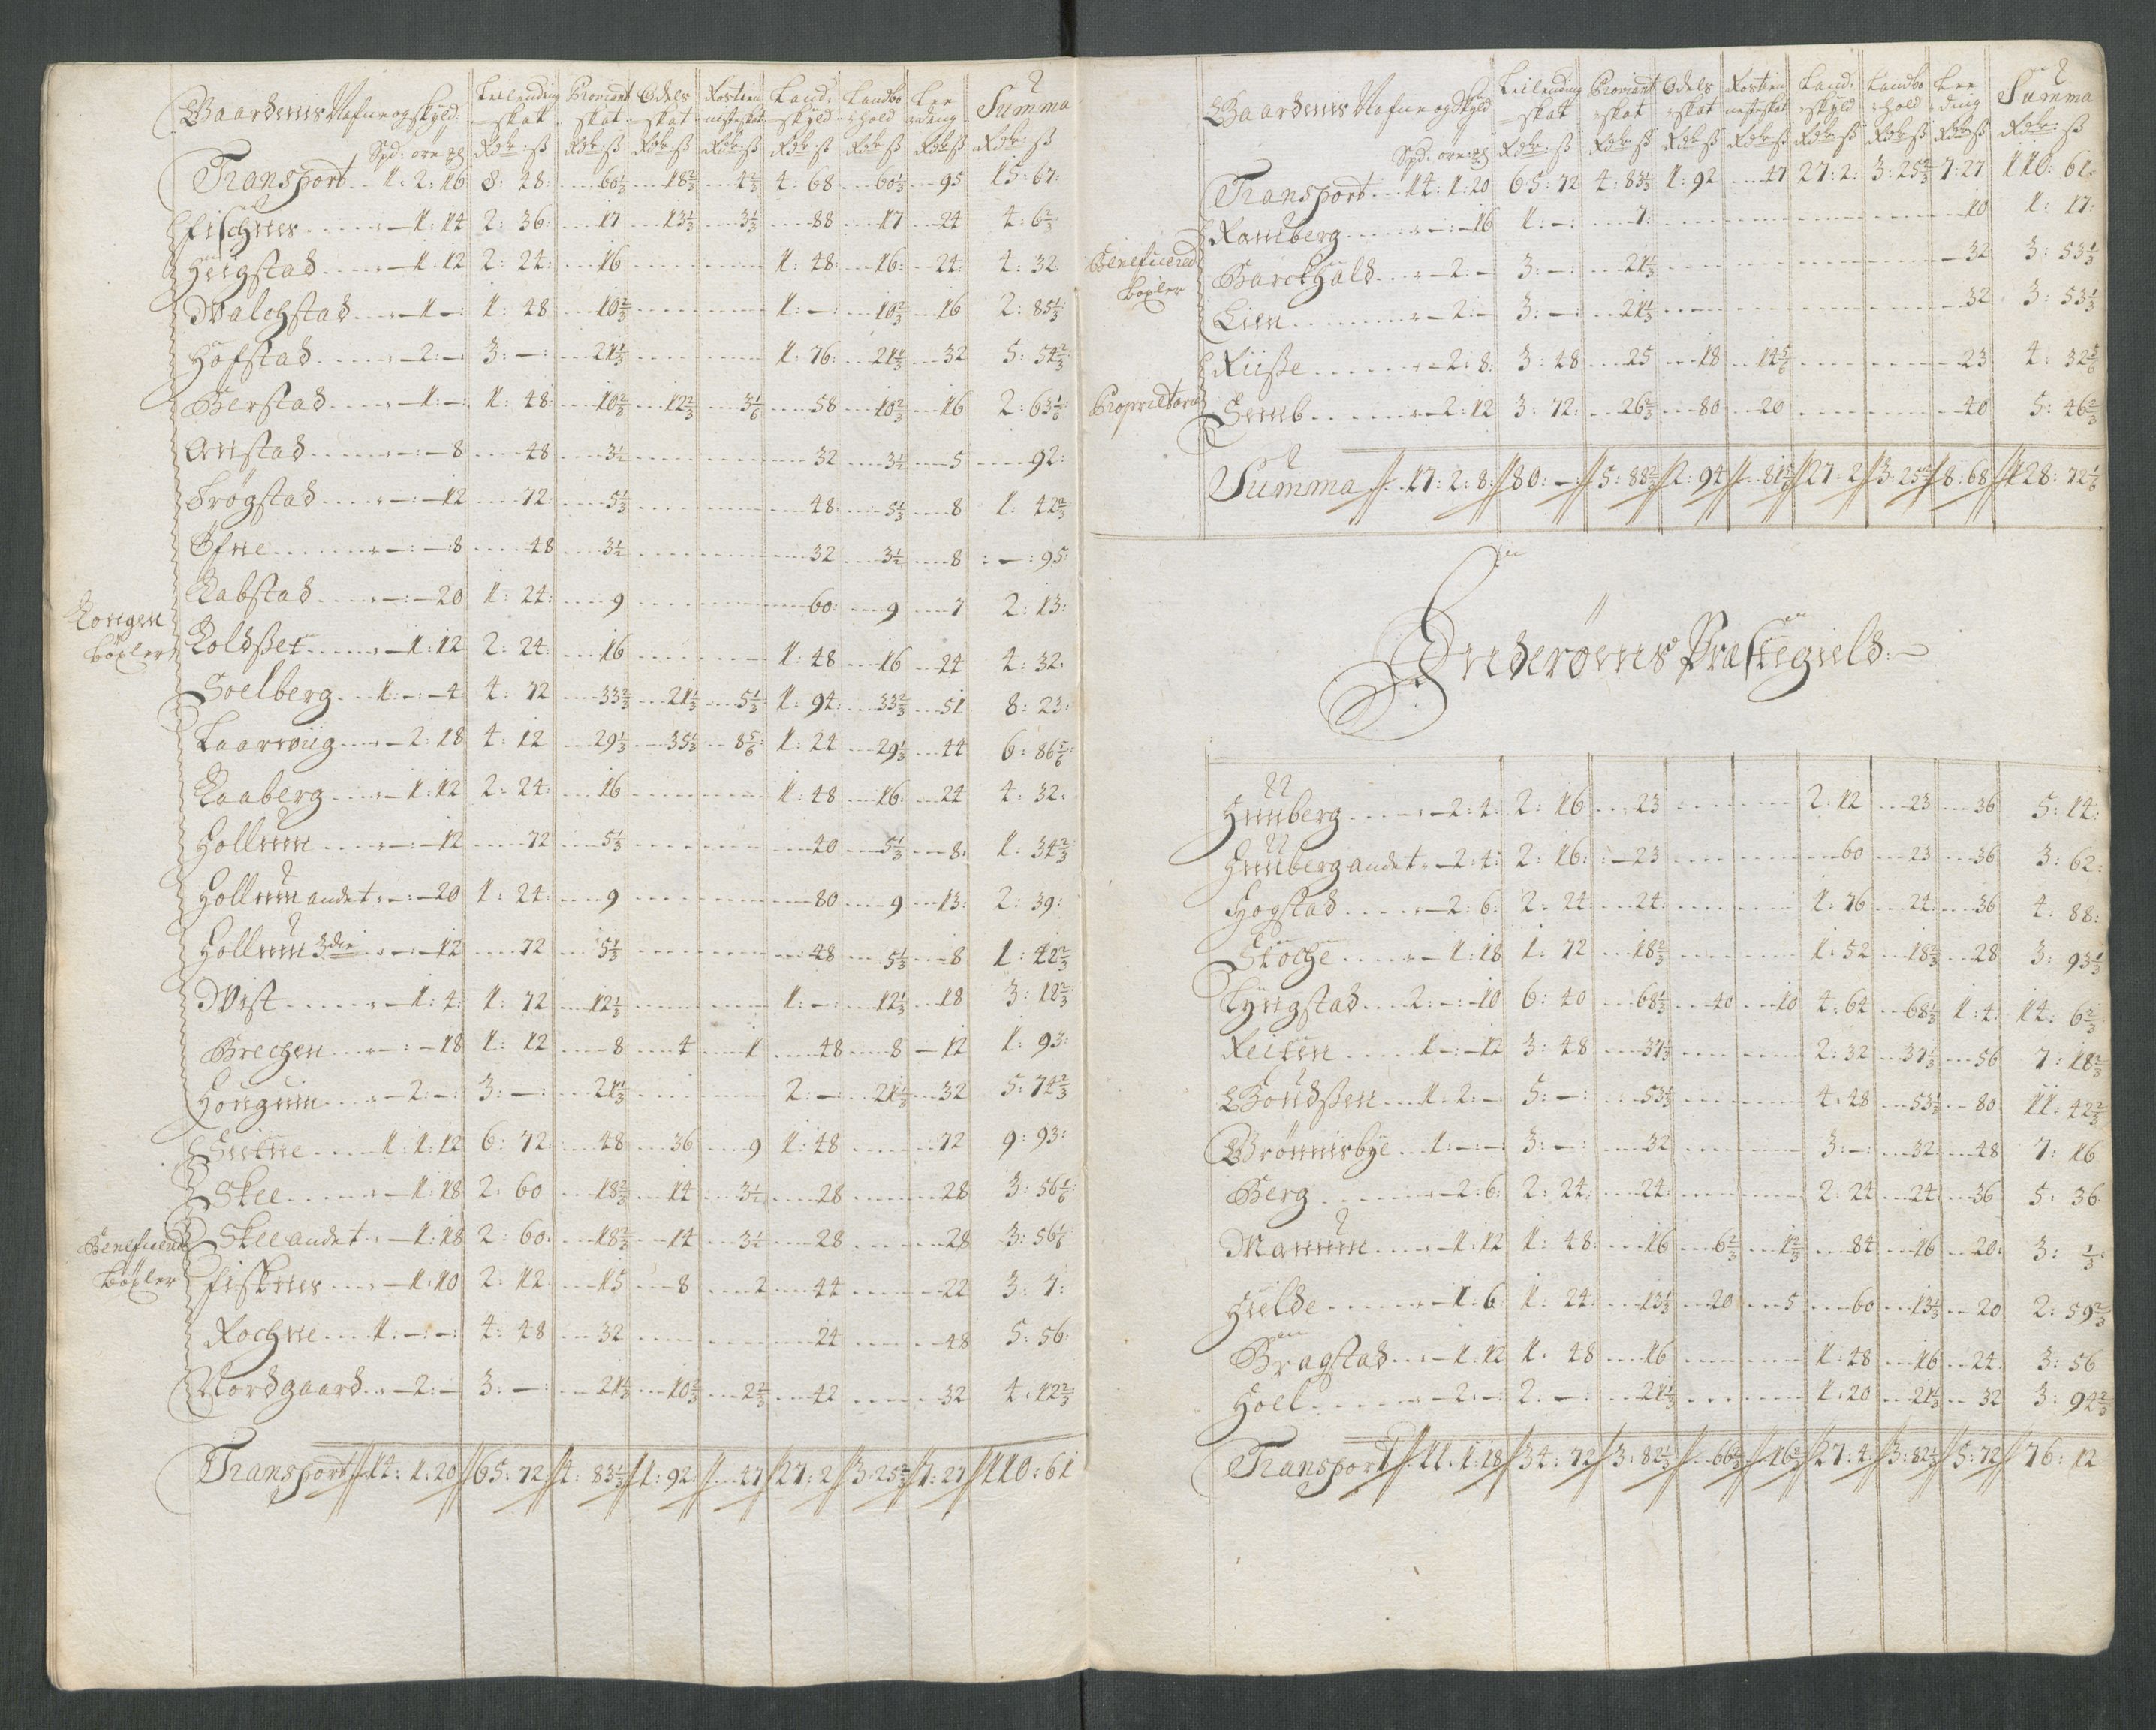 Baardenes Nafne og skyld: Leilending skat Proviant skat Odels skat Rostien nest skat Land skyld Landbo hold Leeding Summa
Spd: ore: Rdr: ß Rdr: ß Rdr: ß Rdr: ß Rdr: ß Rdr: ß Rdr: ß Rdr: ß
Transport 1: 2: 16 8: 28: 60 1/3 18 2/3 4 2/3 4: 68 60 1/3 95 15: 67:
fischnes 1: 14 2: 36: 17 13 1/3 3 1/3 88 17 24 4: 6 2/3
Heigstad 1: 12 2: 24: 16 1: 48: 16: 24: 4: 32
Walchstad 1 –: 1: 48 10 2/3 1: –: 10 2/3 16 2: 85 1/3
Hofstad 2: –: 3: –: 21 1/3 1: 76: 21 1/3 32 5: 54 2/3
Berstad 1: –: 1: 48: 10 2/3 12 2/3 3 1/6 58 10 2/3 16 2: 63 1/6
Anstad –: – 8 48 3 1/2 32 3 1/2 5 92:
Trøgstad –: – 12 72: 5 1/3 48: 5 1/3 8 1: 42 2/3
Ofne –: –: 8 48 3 1/2 32 3 1/2 8 –: 95:
Rabstad –: – 20 1: 24: 9 60: 9 7 2: 13:
Kongen bøxler
Koldßet 1: 12 2: 24: 16 1: 48 16 24 4: 32:
Soelberg 1: –: – 4: 4: 72 33 2/3 21 1/3 5 1/3 1: 94: 33 2/3 51 8: 23:
Laarwiig 2: 18 4: 12 29 1/3 35 1/3 8 5/6 1: 24 29 1/3 44 6: 86 5/6
Raaberg 1: 12 2: 24: 16 1: 48 16: 24 4: 32:
Hollum –: – 12 72 5 1/3 40 5 1/3 8: 1: 34 2/3
Hollum andet –: – 20 1: 24: 9 80 9 13: 2: 39:
Hollum 3die –: – 12 72 5 1/3 48 5 1/3 8 1: 42 2/3
Wist 1: 4: 1: 72 12 1/3 1: –: 12 1/3 18 3: 18 2/3
Brechen –: – 18 1: 12 8 4 1 48 8 12 1: 93:
Hougum 2: –: 3: –: 21 1/3 2: –: 21 1/3 32 5: 74 2/3
Sutne 1: 1: 12 6: 72: 48 36 9 1: 48 72 9: 93:
Skee 1: 18 2: 60 18 2/3 14 3 1/2 28 28 3: 56 1/6
Beneficered bøxler
Skee andet 1: 18 2: 60: 18 2/3 14 3 1/2 28 28 3: 56 1/6
fisknes 1: 10 2: 12: 15 8 2 44 22 3: 7:
Rochne 1: –: –: 4: 48 32 24 48 5: 56:
Nordgaard 2: – 3: –: 21 1/3 10 2/3 2 2/3 42 32 4: 12 2/3
Transport 14: 1: 20 65: 72 4: 83 1/3 1: 92: 47 27: 2 3: 25 2/3 7: 27 110: 61
Baardenes Nafne og Skyld Leilending skat Proviant skat Odels skat Rostien neste skat Land skyld Landbo hold Leeding Summa
Spd: ore: Rdr: ß Rdr: ß Rdr: ß Rdr: ß Rdr: ß Rdr: ß Rdr: ß Rdr: ß
Transport 14: 1: 20 65: 72 4: 83 1/3 1: 92 47 27: 2: 3: 25 2/3 7: 27 110: 61:
Ramberg –: – 16 1: –: 7: 10 1: 17:
Beneficered bøxler
Barckhald 2: – 3: –: 21 1/3 32 3: 53 1/3
Lien 2: – 3: –: 21 1/3 32 3: 53 1/3
Riiße 2: 8: 3: 48 25 18 14 5/6 23 4: 32 5/6
Proprietarie
Sund 2: 12 3: 72: 26 2/3 80 20 40 5: 46 2/3
Summa 17: 2: 8: 80: –: 5: 88 2/3 2: 94 81 5/6 27: 2 3: 25 2/3 8: 68 128: 72 1/6
Inderøens Præstegield:
Hunberg 2: 4: 2: 16 23 2: 12 23 36 5: 14:
Hunberg andet 2: 4: 2: 16: 23 60 23 36 3: 62:
Hogstad 2: 6: 2: 24 24: 1: 76 24: 36 4: 88:
Stoche 1: 18 1: 72 18 2/3 1: 52 18 2/3 28 3: 93 1/3
Lyngstad 2: –: – 10 6: 40 68 1/3 40 10 4: 64 68 1/3 1: 4: 14: 6 2/3
Reiten 1 –: – 12 3: 48 37 1/3 2: 32 37 1/3 56 7: 18 2/3
Boudßen 1: 2: – 5: –: 53 1/3 4: 48 53 1/3 80: 11: 42 2/3
Brønnisbye 1: –: –: 3: –: 32 3: –: 32: 48 7: 16
Berg 2: 6: 2: 24: 24: 2: 24 24: 36 5: 36
Manum 1: 12 1: 48: 16 6 2/3 1 2/3 84 16 20: 3: 1/3
Hielde 1: 6 1: 24: 13 1/3 20 5 60 13 1/3 20 2: 59 2/3
Bragstad 1: 12 1: 48 16 1: 48 16 24: 3: 56
Hoel 2: –: 2: –: 21 1/3 1: 20 21 1/3 32 3: 94 2/3
Transport 11: 1: 18 34: 72 3: 82 1/3 66 2/3 16 2/3 27: 4: 3: 82 1/3 5: 72 76: 12